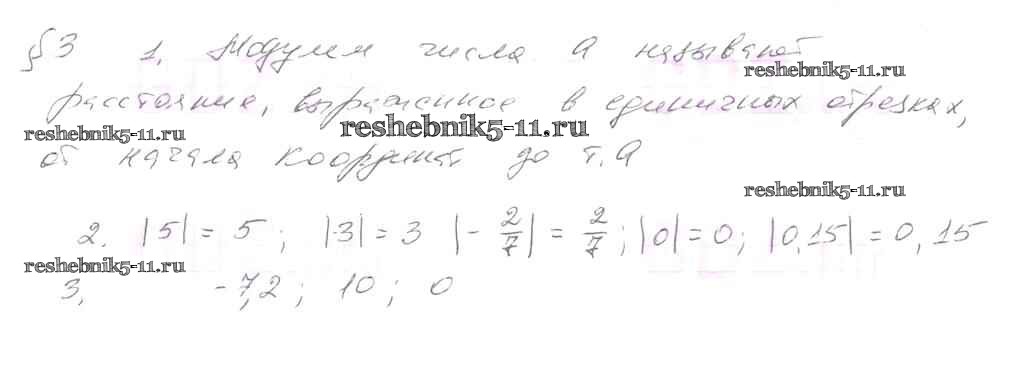 §3 1. Модулем числа а называют
reshebnik5-11.ru
расстояние, выраженное в единичных отрезках,
reshebnik5-11.ru reshebnik5-11.ru
от начала координат до т. а
reshebnik5-11.ru
2. |5| = 5; |-3| = 3 |-2/7| = 2/7; |0| = 0; |0,15| = 0,15
reshebnik5-11.ru
3, -7,2; 10; 0